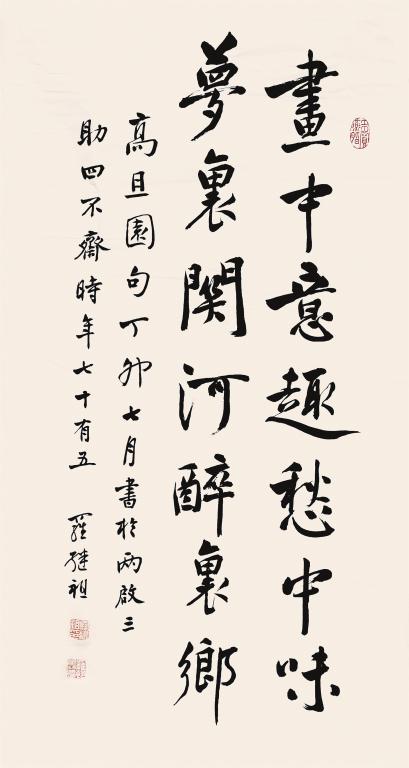 畫中意趣愁中味
夢裏関河醉裏鄉
高且園句丁卯七月書於兩啟三
助四不齋時年七十有五 羅継祖